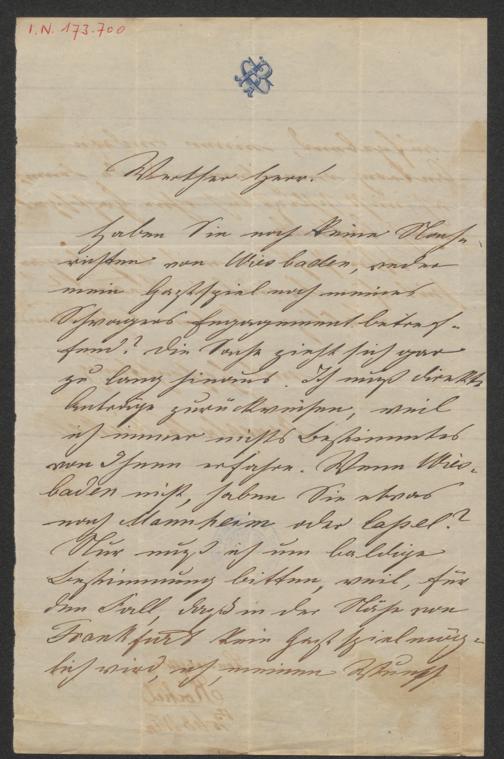 I.N. 173.700
Werther Herr!
Haben Sie noch keine Nach-
richten von Wiesbaden, weder
mein Gastspiel noch meines
Schwagers Engagement betref-
fend? Die Sache zieht sich gar
zu lang hinaus. Ich muß direkte
Anträge zurückweisen, weil
ich immer nichts Bestimmtes
von Ihnen erfahre. Wenn Wies-
baden nicht, haben Sie etwas
nach Mannheim oder Cassel?
Nur muß ich um baldige
Bestimmung bitten, weil, für
den Fall, daß in der Nähe von
Frankfurt kein Gastspiel mög-
lich wird, ich meinen Wunsch